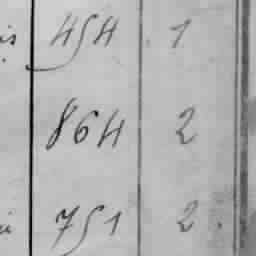 is 454 1
864 2
751 2.